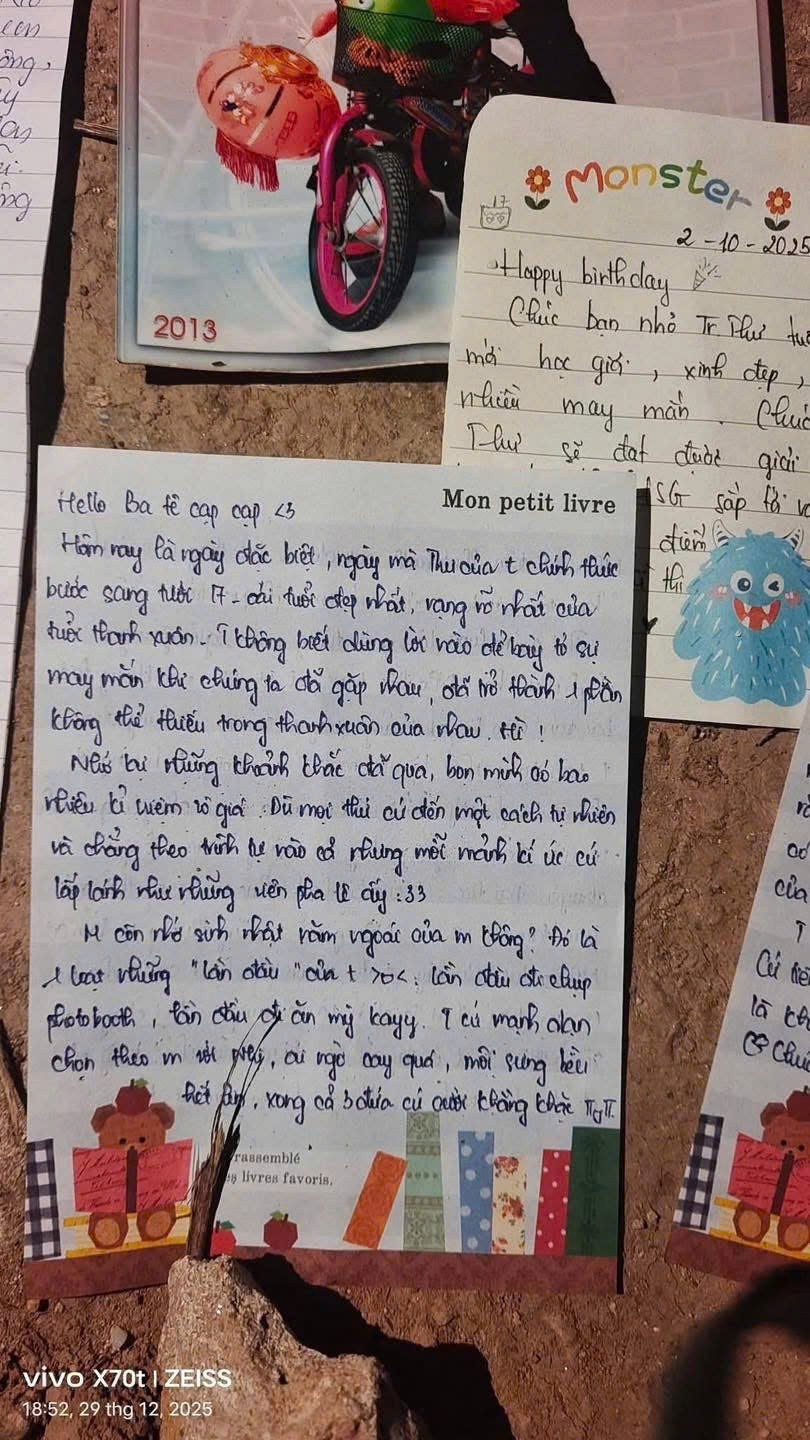 2013
Monster
17
2-10-2025
Happy birthday
Chúc bạn nhỏ Tr.Thư tuổ
mới học giỏi, xinh đẹp,
nhiều may mắn. Chúc
Thư sẽ đạt được giải
HSG sắp tới v
điểm
thi
Mon petit livre
Hello Ba tê cạp cạp <3
Hôm nay là ngày đặc biệt, ngày mà Thư của t chính thức
bước sang tuổi 17 - cái tuổi đẹp nhất, rạng rỡ nhất của
tuổi thanh xuân. T không biết dùng lời nào để bày tỏ sự
may mắn khi chúng ta đã gặp nhau, đã trở thành 1 phần
không thể thiếu trong thanh xuân của nhau. Hì!
Nhớ lại những khoảnh khắc đã qua, bọn mình có bao
nhiêu kỉ niệm vô giá. Dù mọi thứ cứ đến một cách tự nhiên
và chẳng theo trình tự nào cả nhưng mỗi mảnh kí ức cứ
lấp lánh như những viên pha lê ấy :33
M còn nhớ sinh nhật năm ngoái của m không? Đó là
1 loạt những "lần đầu" của t >o<: lần đầu đi chụp
photobooth, lần đầu đi ăn mỳ kayy. T cứ mạnh dạn
chọn theo m với, ai ngờ cay quá, môi sưng
hết lên, xong cả 3 đứa cứ cười khằng khặc
rassemblé
es livres favoris.
là
của
T
Cứ
là
Chúc
vivo X70t | ZEISS
18:52, 29 thg 12, 2025